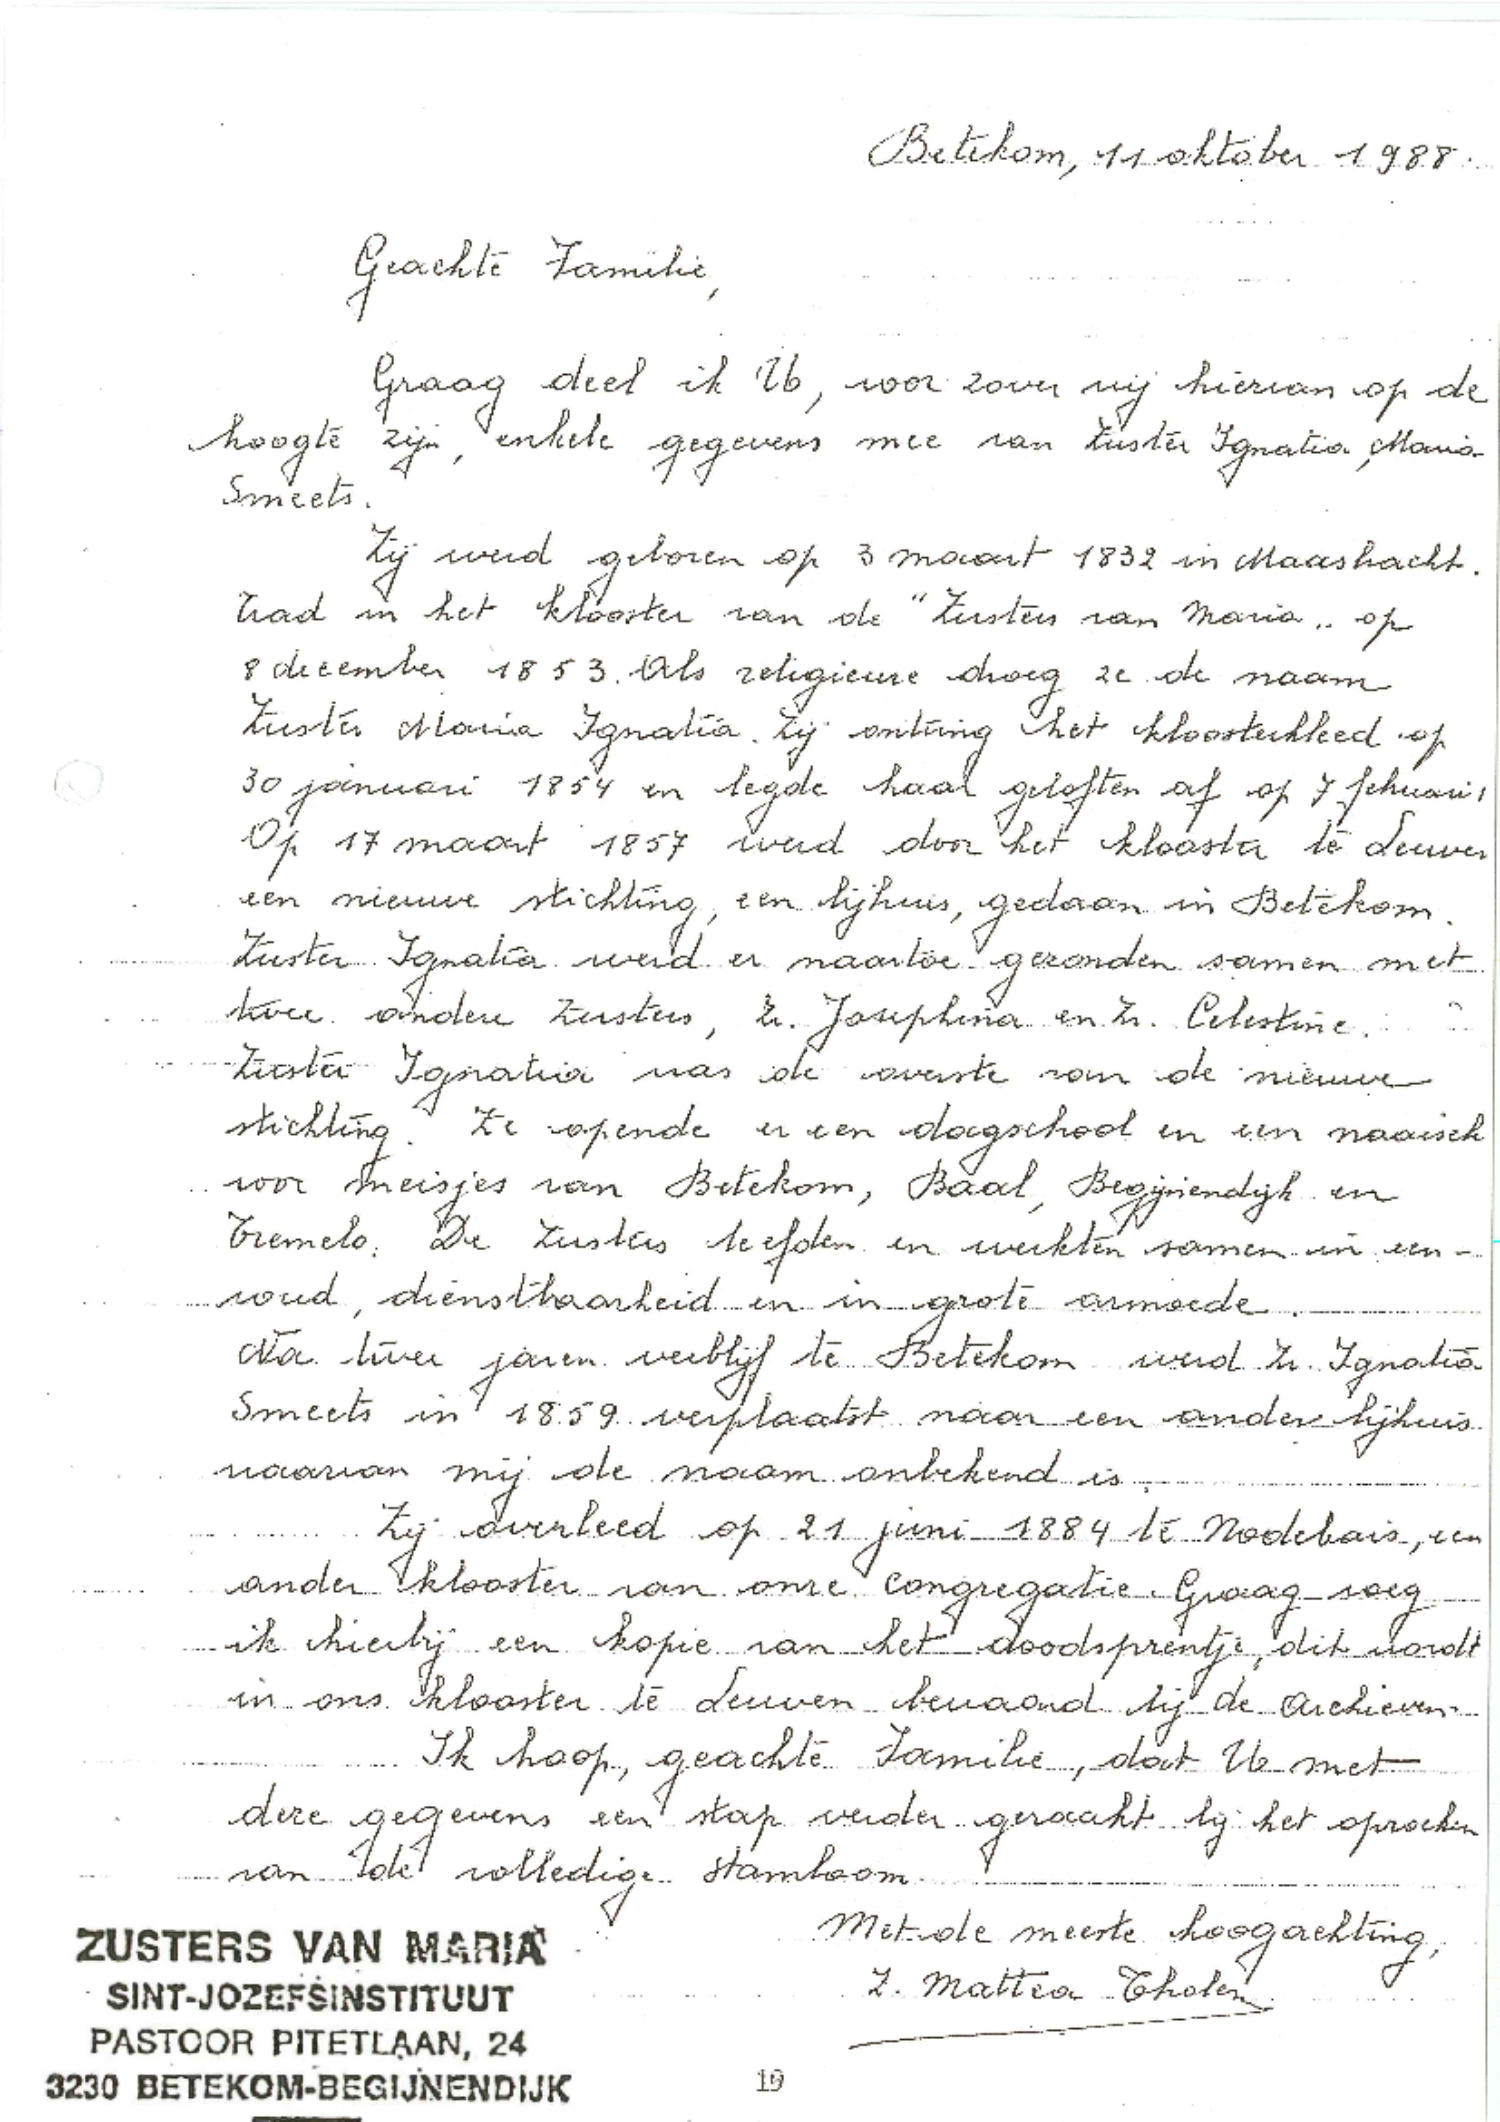 Betekom, 11 oktober 1988.
Geachte Familie,
Graag deel ik U, voor zover wij hiervan op de
hoogte zijn, enkele gegevens mee van Zuster Ignatia, Maria
Smeets.
Zij werd geboren op 3 maart 1832 in Maasbracht.
Trad in het klooster van de "Zusters van Maria„ op
8 december 1853. Als religieuze droeg ze de naam
Zuster Maria Ignatia. Zij ontving het kloosterkleed op
30 januari 1854 en legde haar geloften af op 7 februari
Op 17 maart 1857 werd door het klooster te Leuven
een nieuwe stichting, een bijhuis, gedaan in Betekom.
Zuster Ignatia werd er naartoe gezonden samen met
twee andere zusters, Zr. Josephina en Zr. Celestine.
Zuster Ignatia was de overste van de nieuwe
stichting. Ze opende er een dagschool en een naaisch
voor meisjes van Betekom, Baal, Begijnendijk en
Tremelo. De zusters leefden en werkten samen in een-
voud, dienstbaarheid en in grote armoede.
Na twee jaren verblijf te Betekom werd Zr. Ignatia
Smeets in 1859 verplaatst naar een ander bijhuis
waarvan mij de naam onbekend is.
Zij overleed op 21 juni 1884 te Nodebais, een
ander klooster van onze congregatie. Graag voeg
ik hierbij een kopie van het doodsprentje, dit wordt
in ons klooster te Leuven bewaard bij de archieven.
Ik hoop, geachte Familie, dat U met
deze gegevens een stap verder geraakt bij het opzoeken
van de volledige stamboom.
Met de meeste hoogachting,
Z. Mattea Tholen
ZUSTERS VAN MARIA
SINT-JOZEFSINSTITUUT
PASTOOR PITETLAAN, 24
3230 BETEKOM-BEGIJNENDIJK
19